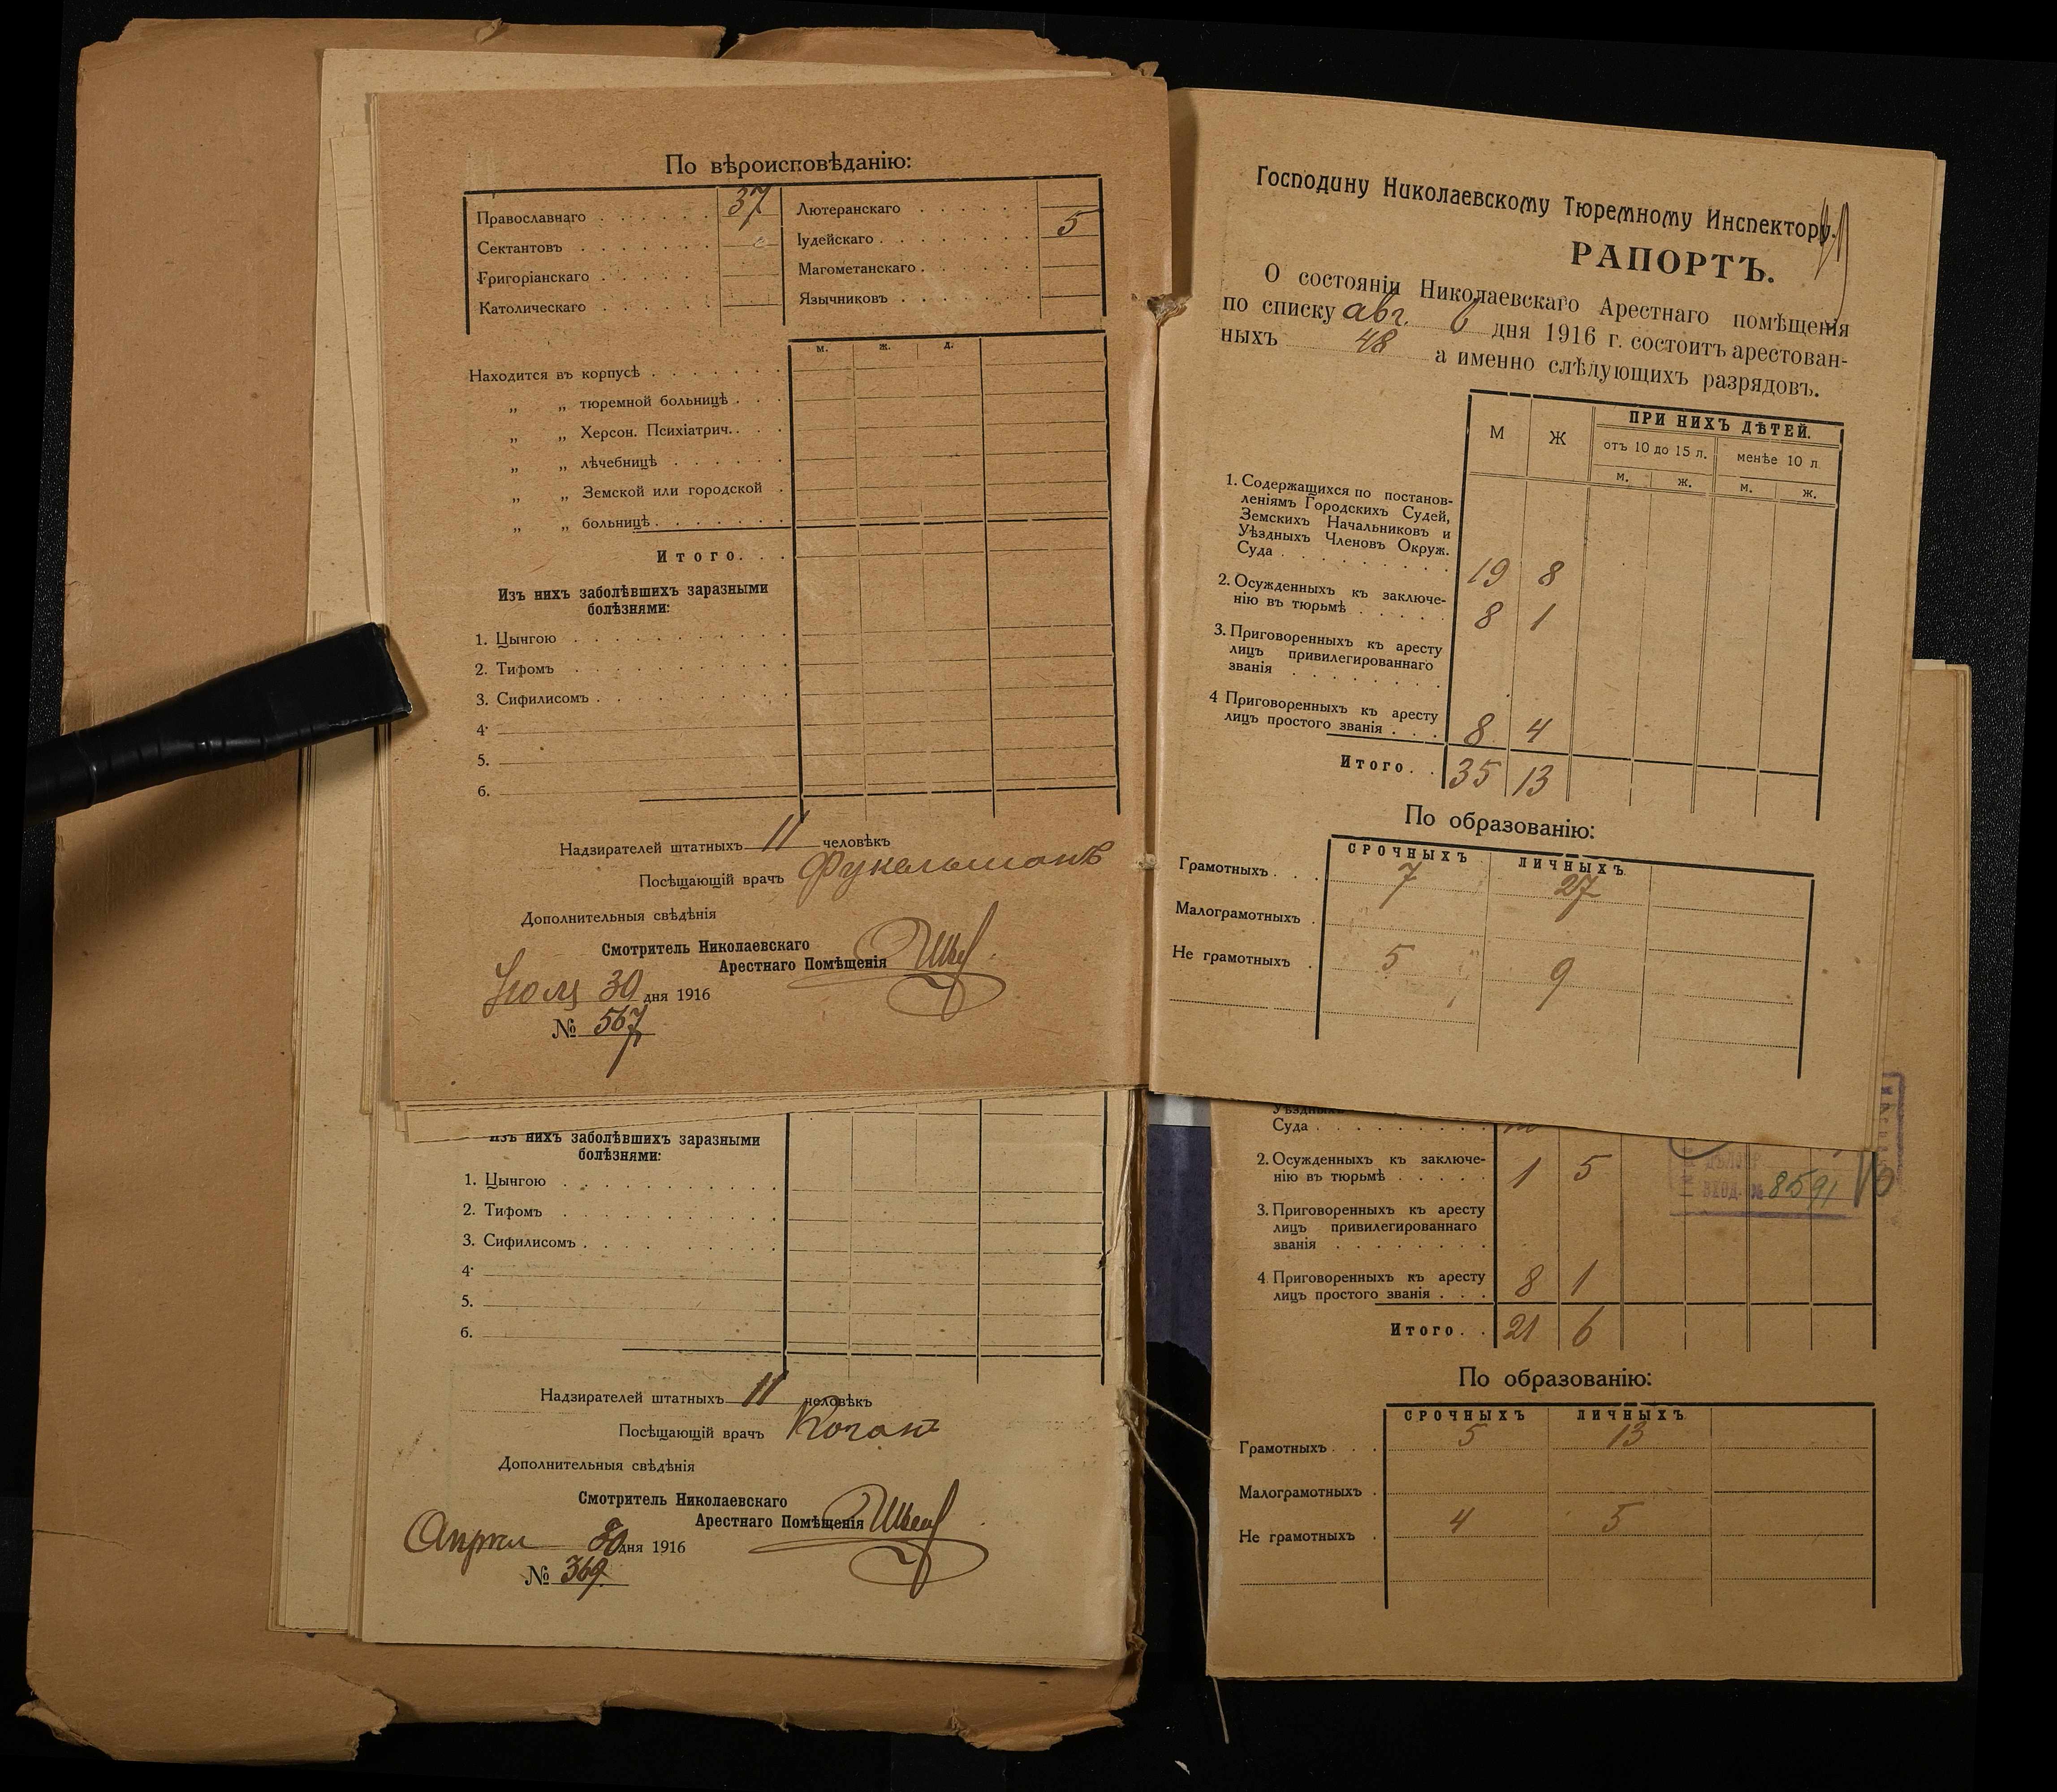 По вѣроисповѣданію:
Православнаго . . . . . . 37
Сектантовъ . . . . . . .
Григоріанскаго . . . . . .
Католическаго . . . . . .
Лютеранскаго . . . . . .
Іудейскаго . . . . . . . . 5
Магометанскаго . . . . . .
Язычниковъ . . . . . . .
м. ж. д.
Находится въ корпусѣ . . . . . . .
„ „ тюремной больницѣ . . .
„ „ Херсон. Психіатрич. . . .
„ „ лѣчебницѣ . . . . . .
„ „ Земской или городской .
„ „ больницѣ . . . . . . .
Итого. . .
Изъ нихъ заболѣвшихъ заразными
болѣзнями:
1. Цынгою . . . . . . . . . . .
2. Тифомъ . . . . . . . . . . .
3. Сифилисомъ . . . . . . . . . .
4.
5.
6.
Надзирателей штатныхъ 11 человѣкъ
Посѣщающій врачъ
Дополнительныя свѣдѣнія
Смотритель Николаевскаго
Арестнаго Помѣщенія
Іюля 30 дня 1916
№ 567
Господину Николаевскому Тюремному Инспектору.
РАПОРТЪ.
О состояніи Николаевскаго Арестнаго помѣщенія
по списку авг. 6 дня 1916 г. состоитъ арестован-
ныхъ 48 а именно слѣдующихъ разрядовъ.
М Ж ПРИ НИХЪ ДѢТЕЙ.
отъ 10 до 15 л. менѣе 10 л
м. ж. м. ж.
1. Содержащихся по постанов-
леніямъ Городскихъ Судей,
Земскихъ Начальниковъ и
Уѣздныхъ Членовъ Окруж.
Суда . . . . . . . . 19 8
2. Осужденныхъ къ заключе-
нію въ тюрьмѣ . . . . . 8 1
3. Приговоренныхъ къ аресту
лицъ привилегированнаго
званія . . . . . . . .
4 Приговоренныхъ къ аресту
лицъ простого званія . . . 8 4
Итого. . 35 13
По образованію:
СРОЧНЫХЪ ЛИЧНЫХЪ
Грамотныхъ . . . 7 27
Малограмотныхъ .
Не грамотныхъ . 5 9
Изъ нихъ заболѣвшихъ заразными
болѣзнями:
1. Цынгою . . . . . . . . . . .
2. Тифомъ . . . . . . . . . . .
3. Сифилисомъ . . . . . . . . .
4.
5.
6.
Надзирателей штатныхъ 11 человѣкъ
Посѣщающій врачъ Коганъ
Дополнительныя свѣдѣнія
Смотритель Николаевскаго
Арестнаго Помѣщенія
дня 1916
№ 369
Уѣздныхъ
Суда . . . . . . . . .
2. Осужденныхъ къ заключе-
нію въ тюрьмѣ . . . . . 1 5
ВХОД. № 8591
3. Приговоренныхъ къ аресту
лицъ привилегированнаго
званія . . . . . . . .
4. Приговоренныхъ къ аресту
лицъ простого званія . . . 8 1
Итого. . 21 6
По образованію:
СРОЧНЫХЪ ЛИЧНЫХЪ
Грамотныхъ . . . 5 13
Малограмотныхъ .
Не грамотныхъ . 4 5